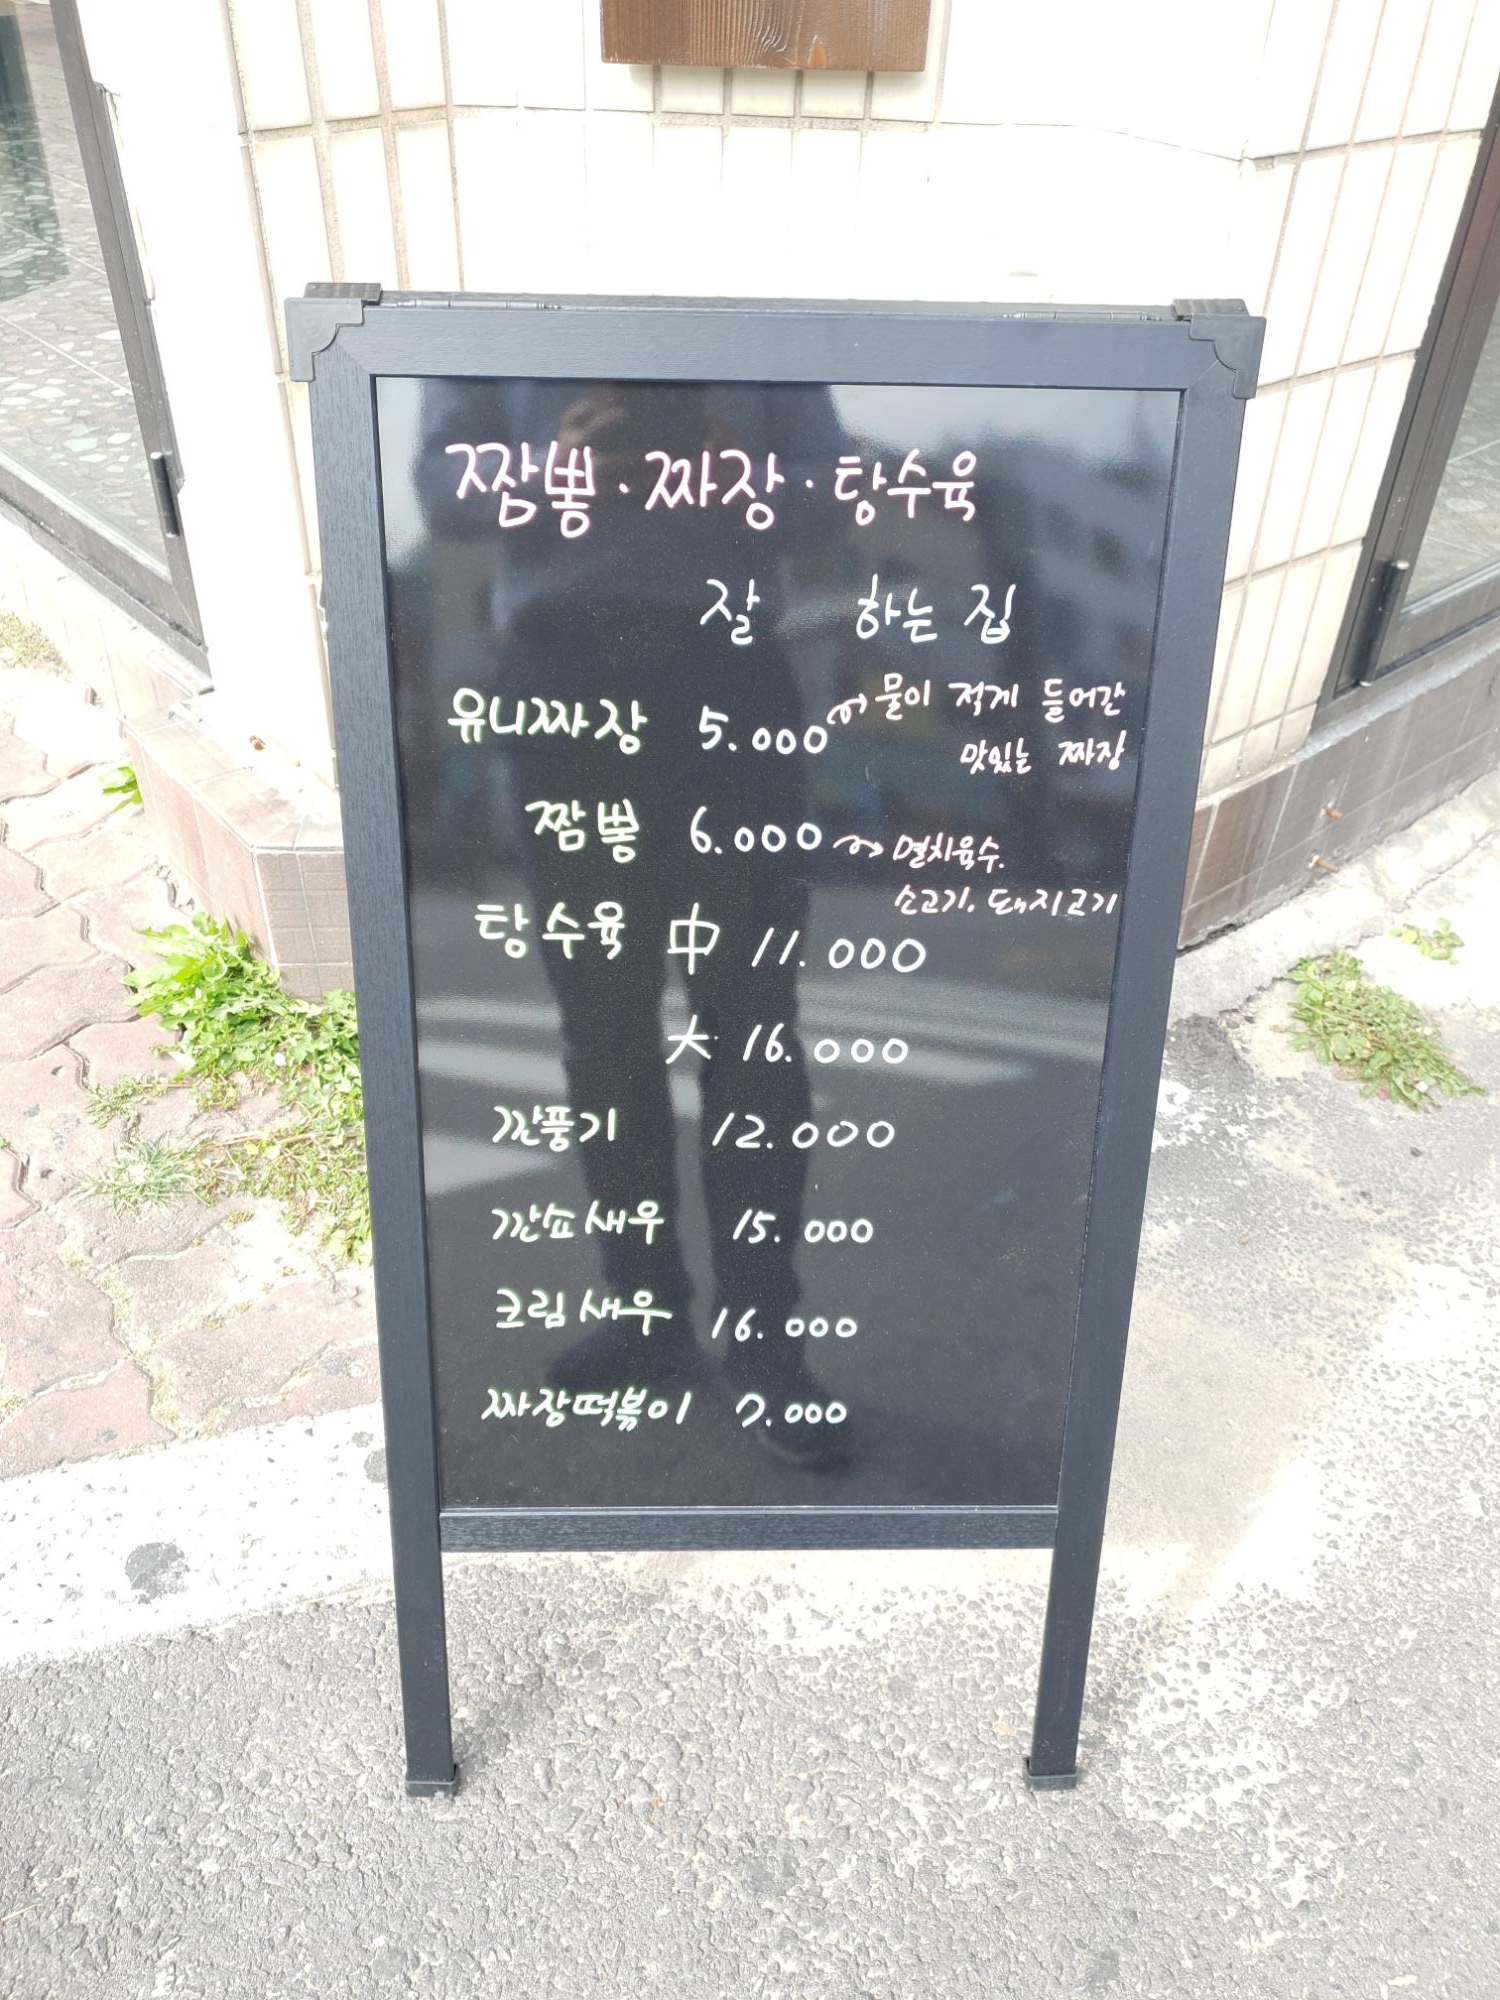 짬뽕 · 짜장 · 탕수육
잘 하는 집
유니짜장 5.000 물이 적게 들어간
맛있는 짜장
짬뽕 6.000 멸치육수.
소고기, 돼지고기
탕수육 中 11.000
大 16.000
깐풍기 12.000
깐쇼새우 15.000
크림새우 16.000
짜장떡볶이 7.000